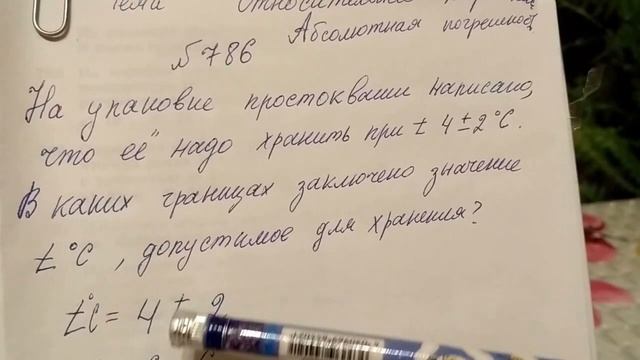 Тема Относительная
Абсолютная погрешность
№786
На упаковке простокваши написано,
что её надо хранить при t 4 ± 2°С.
В каких границах заключено значение
t °С, допустимое для хранения?
t°С = 4 ± 2